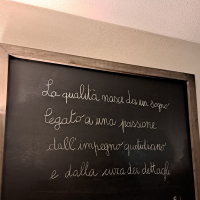 La qualità nasce da un sogno
legato a una passione
dall'impegno quotidiano
e dalla cura dei dettagli